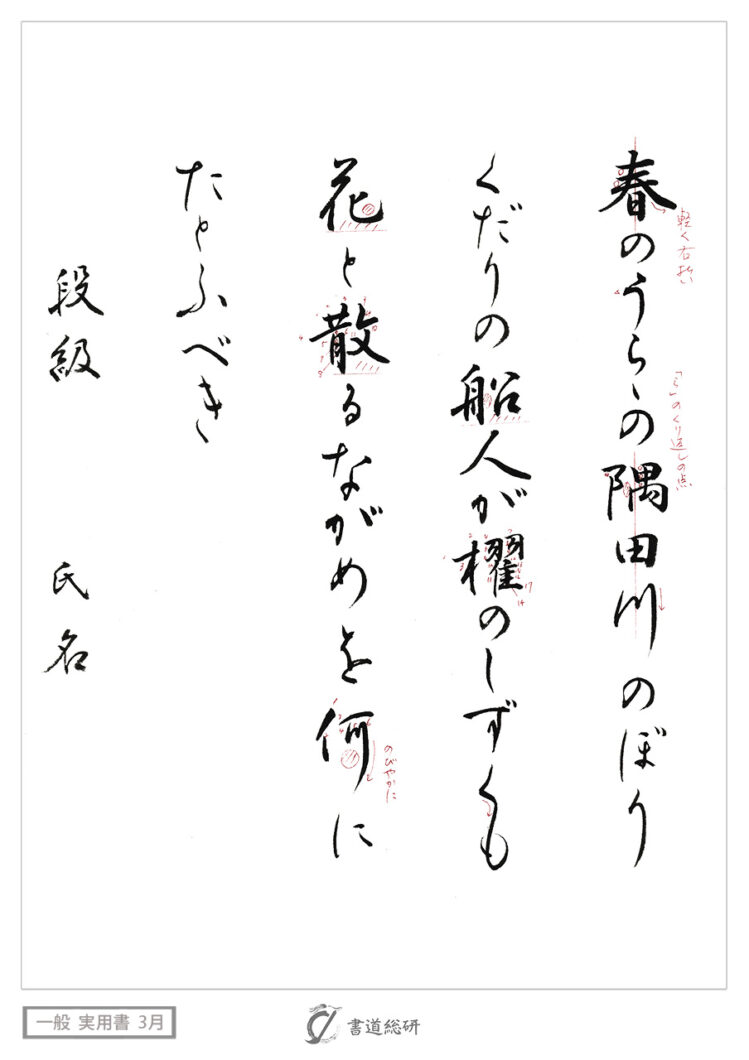 春のうらゝの隅田川のぼり
くだりの船人が櫂のしずくも
花と散るながめを何に
たとふべき
段級 氏名
軽く右払い
「ら」のくり返しの点
のびやかに
一般 実用書 3月
書道総研